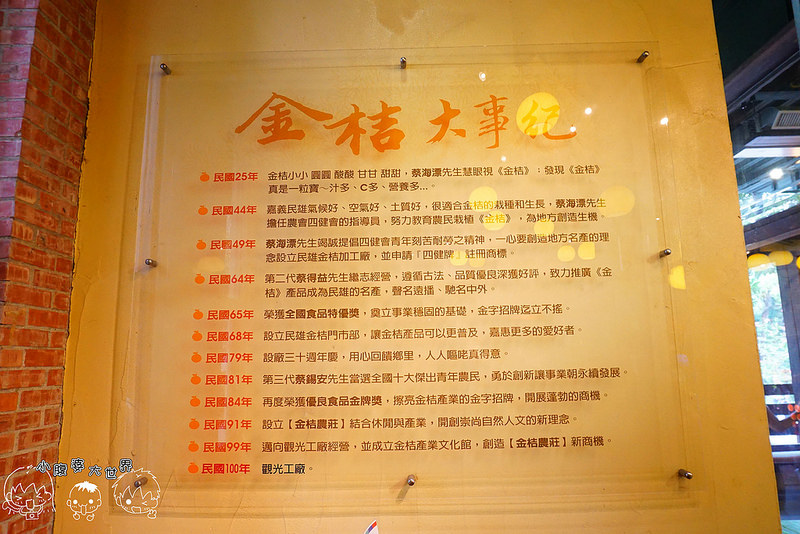 金桔大事紀
民國25年 金桔小小 圓圓 酸酸 甘甘 甜甜，蔡海漂先生慧眼視《金桔》：發現《金桔》
真是一粒寶～汁多、C多、營養多…。
民國44年 嘉義民雄氣候好、空氣好、土質好，很適合金桔的栽種和生長，蔡海漂先生
擔任農會四健會的指導員，努力教育農民栽植《金桔》，為地方創造生機。
民國49年 蔡海漂先生竭誠提倡四健會青年刻苦耐勞之精神，一心要創造地方名產的理
念設立民雄金桔加工廠，並申請「四健牌」註冊商標。
民國64年 第二代蔡得益先生繼志經營，遵循古法、品質優良深獲好評，致力推廣《金
桔》產品成為民雄的名產，聲名遠播、馳名中外。
民國65年 榮獲全國食品特優獎，奠立事業穩固的基礎，金字招牌迄立不搖。
民國68年 設立民雄金桔門市部，讓金桔產品可以更普及，嘉惠更多的愛好者。
民國79年 設廠三十週年慶，用心回饋鄉里，人人嘔咾真得意。
民國81年 第三代蔡錫安先生當選全國十大傑出青年農民，勇於創新讓事業朝永續發展。
民國84年 再度榮獲優良食品金牌獎，擦亮金桔產業的金字招牌，開展蓬勃的商機。
民國91年 設立【金桔農莊】結合休閒與產業，開創崇尚自然人文的新理念。
民國99年 邁向觀光工廠經營，並成立金桔產業文化館，創造【金桔農莊】新商機。
民國100年 觀光工廠。
小腹婆大世界